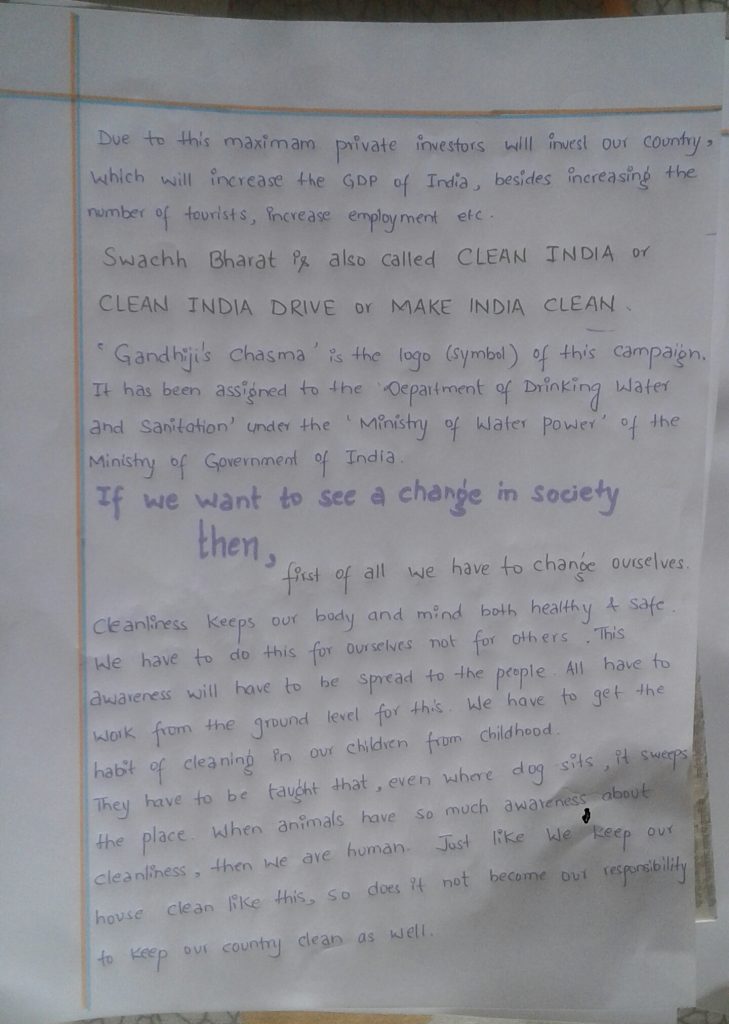 Due to this maximam private investors will invest our country,
which will increase the GDP of India, besides increasing the
number of tourists, increase employment etc.
Swachh Bharat is also called CLEAN INDIA or
CLEAN INDIA DRIVE or MAKE INDIA CLEAN.
'Gandhiji's Chasma' is the logo (symbol) of this campaign.
It has been assigned to the 'Department of Drinking Water
and Sanitation' under the 'Ministry of Water Power' of the
Ministry of Government of India.
If we want to see a change in society
then,
first of all we have to change ourselves.
Cleanliness keeps our body and mind both healthy & safe.
We have to do this for ourselves not for others. This
awareness will have to be spread to the people. All have to
work from the ground level for this. We have to get the
habit of cleaning in our children from childhood.
They have to be taught that, even where dog sits, it sweeps
the place. When animals have so much awareness about
cleanliness, then we are human. Just like we keep our
house clean like this, so does it not become our responsibility
to keep our country clean as well.